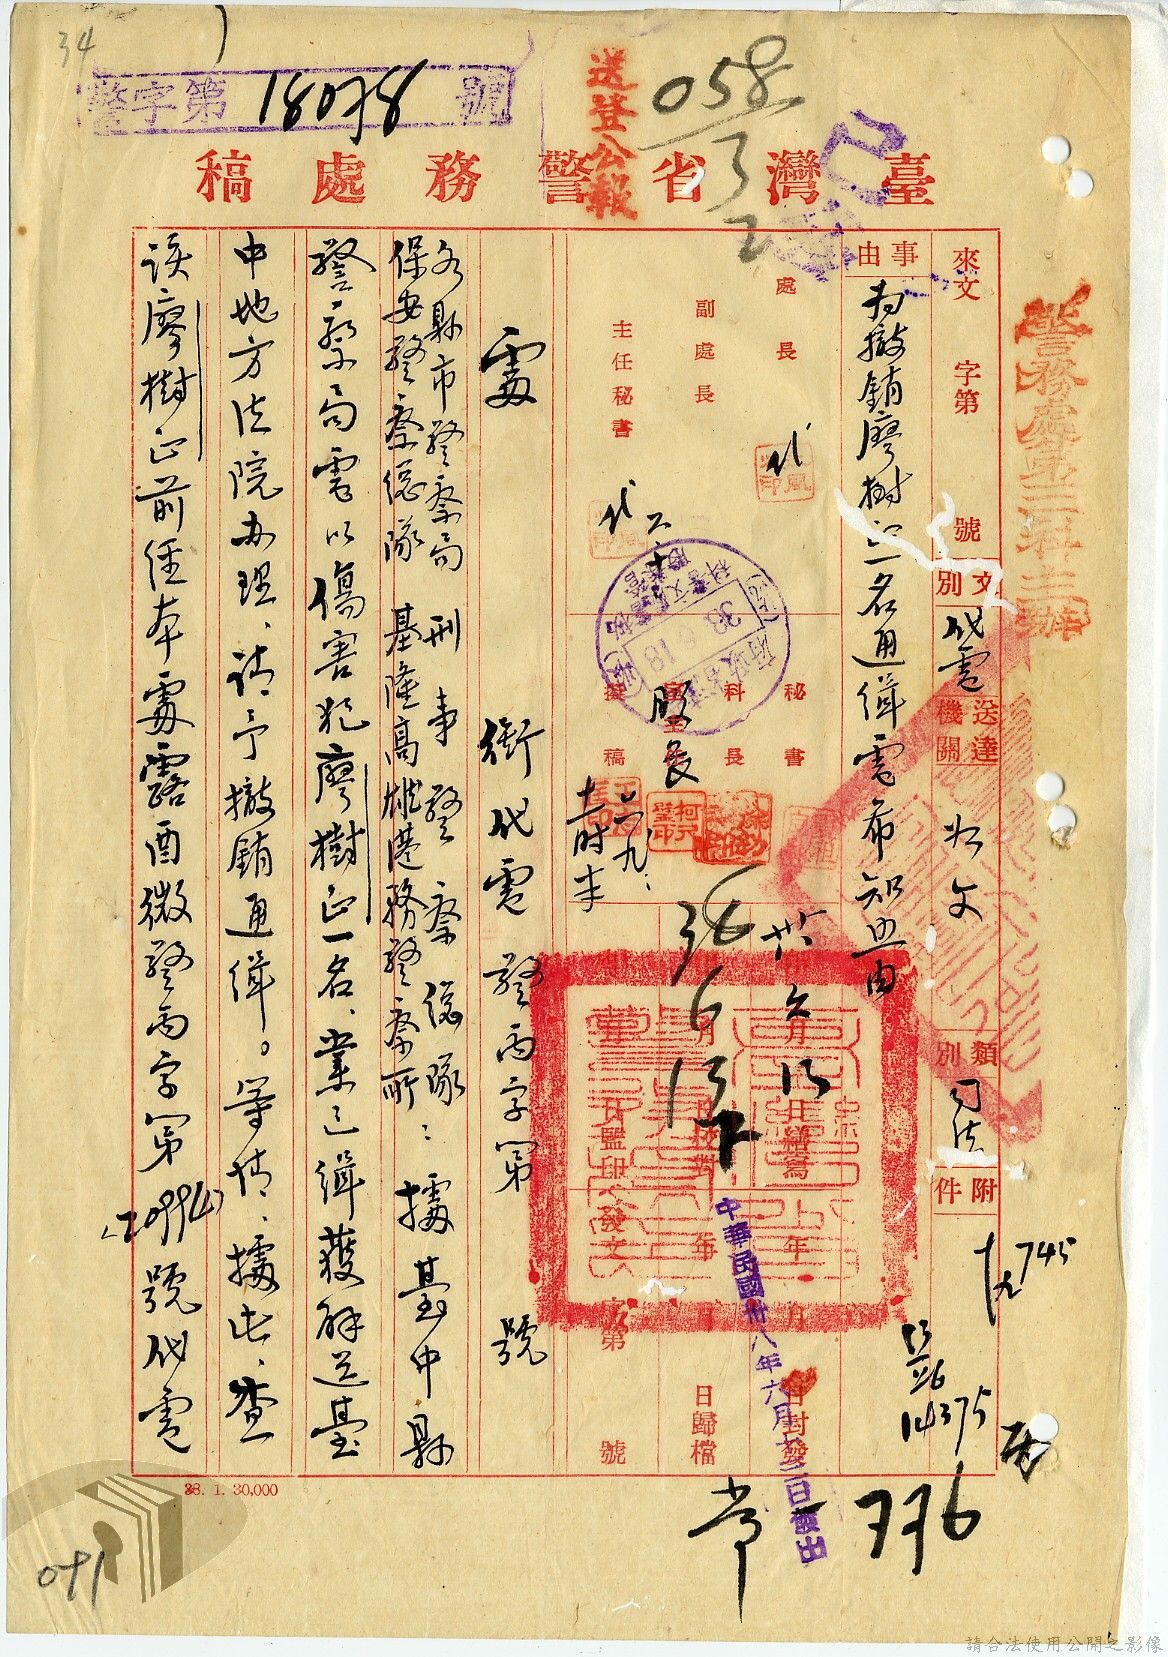 34
警字第18078號
送登公報
058
臺灣省警務處稿
警務處第二科主辦
來文 字第 號
文別 代電
送達機關
類別 司法
附件
事由
為撤銷廖樹正一名通緝電希知照由
處長 代
副處長
主任秘書 代
秘書
科長
股長
擬稿
38 6 18
38 6 13
月 日繕寫
月 日校對
月 日監印
發文 字第 號
年 月 日封發
年 月 日歸檔
中華民國卅八年六月十三日發出
745
14375
常 一 776
處 衔代電 警丙字第 號
各縣市警察局 刑事警察總隊
保安警察總隊 基隆高雄港務警察所:據臺中縣
警察局電以傷害犯廖樹正一名、業已緝獲解送臺
中地方法院办理、請予撤銷通緝。等情、據此、查
該廖樹正前經本處 酉微警丙字第20994號代電
38. 1. 30,000
091
請合法使用公開之影像